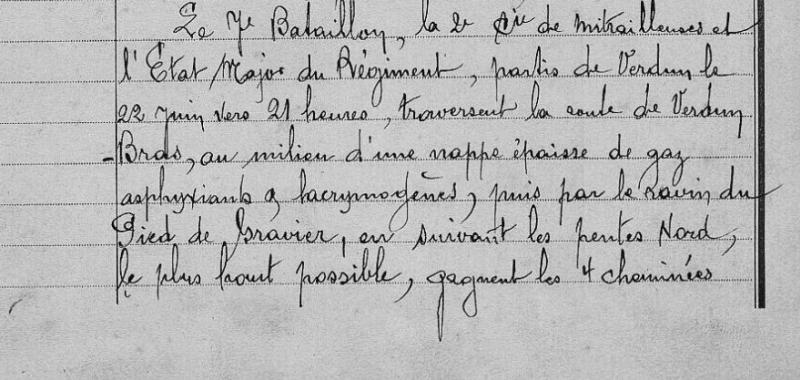 Le 7e Bataillon, la 2e Cie de mitrailleuses et
l'État Major du Régiment, partis de Verdun le
22 Juin vers 21 heures, traversent la route de Verdun
-Bras, au milieu d'une nappe épaisse de gaz
asphyxiants & lacrymogènes, puis par le ravin du
Pied de Gravier, en suivant les pentes Nord,
le plus haut possible, gagnent les 4 cheminées